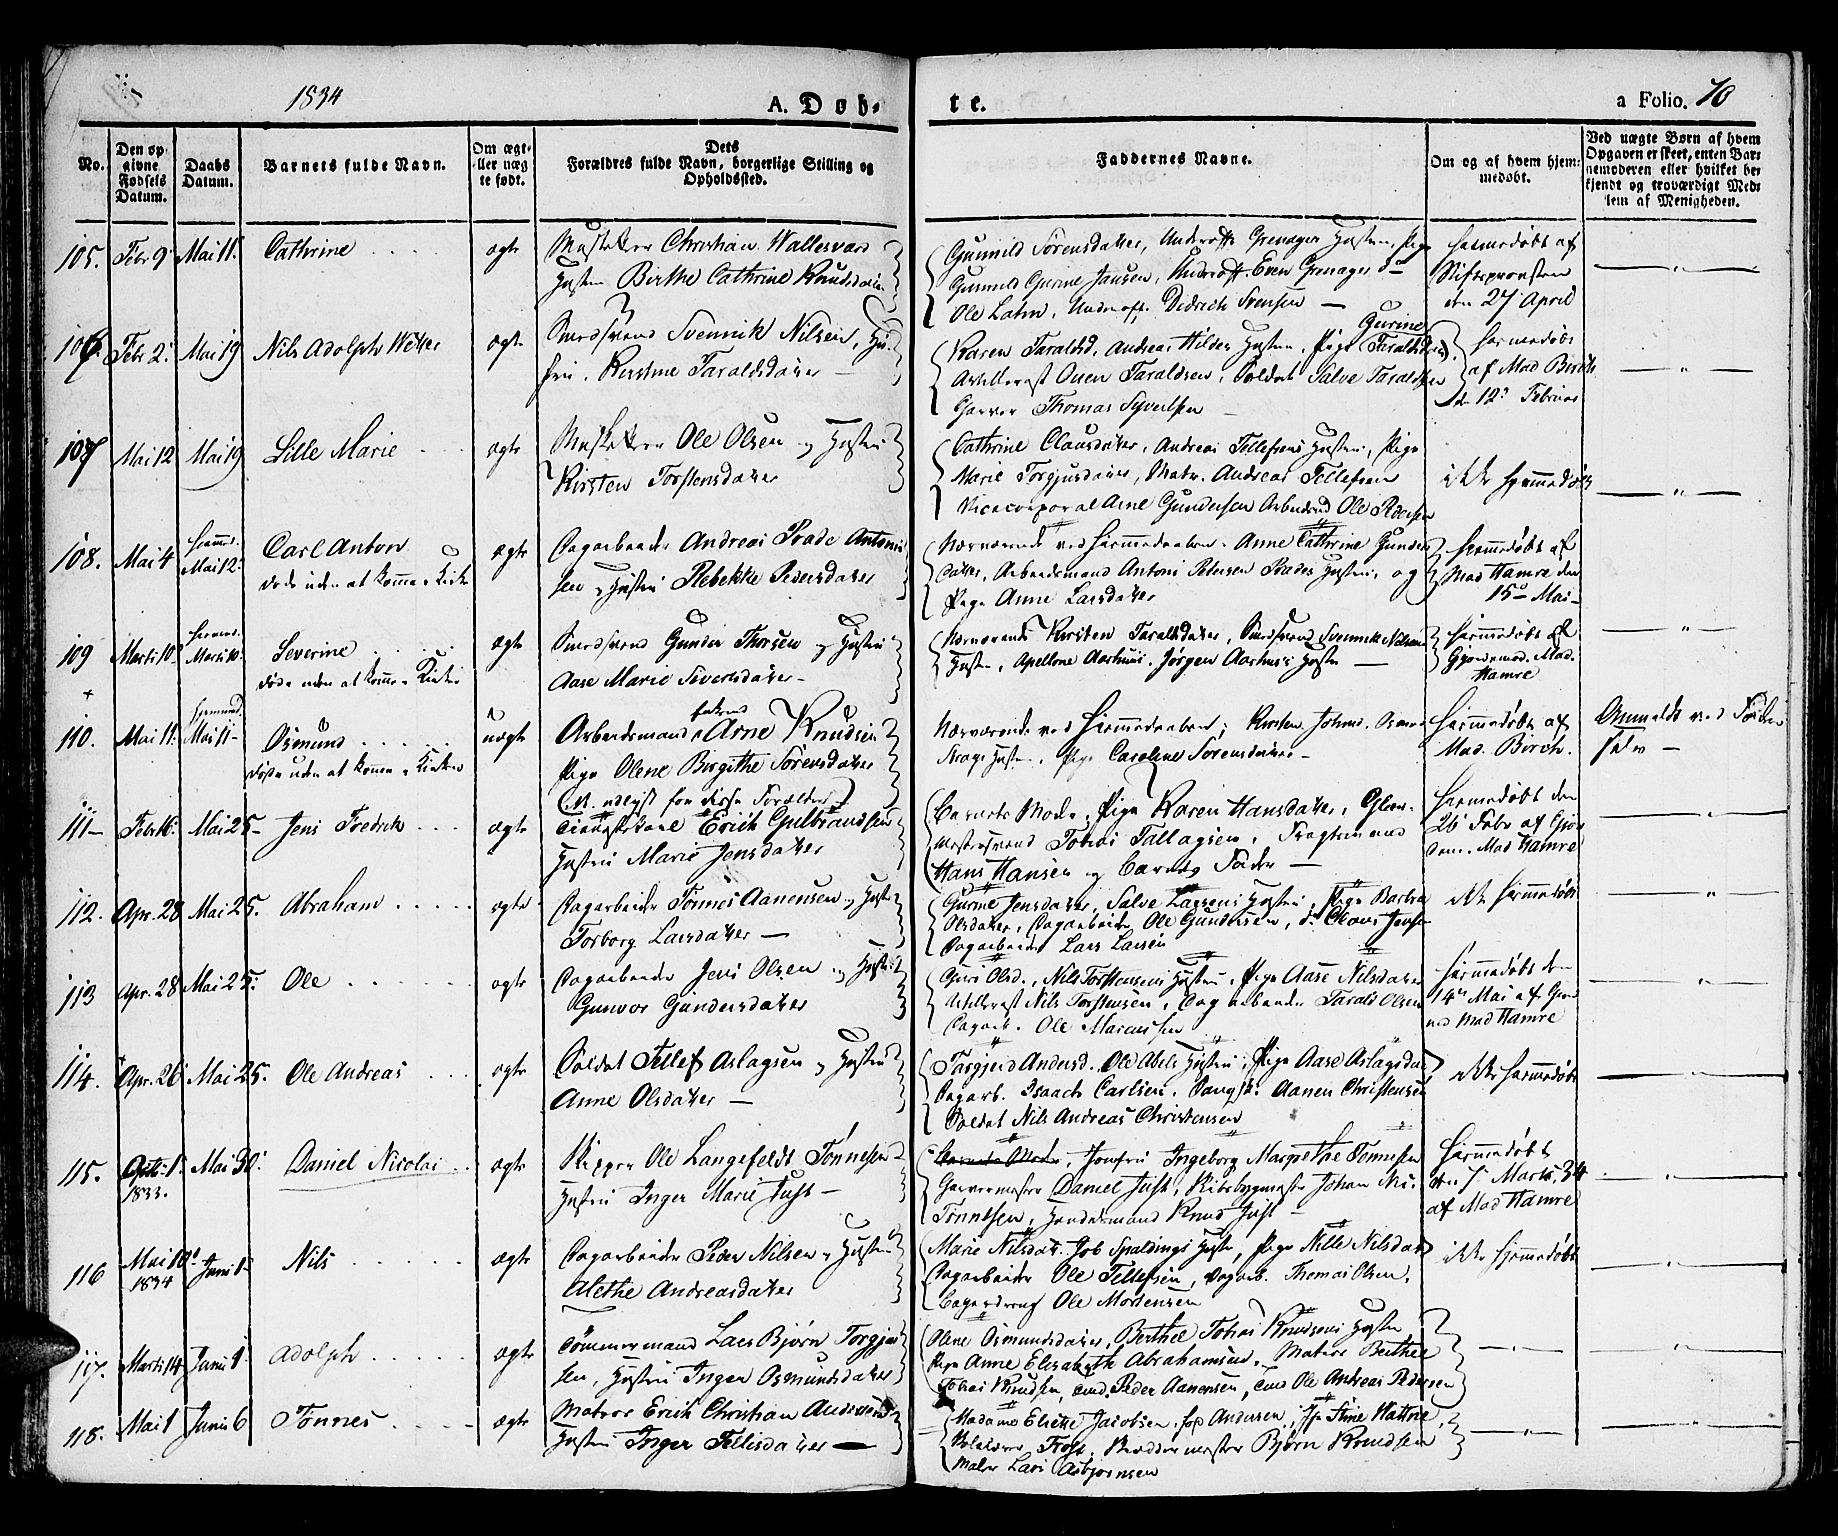 1834
A. Døb-
te.
a Folio. 70
No.
Den op-
givne
Fødsels
Datum.
Daabs
Datum.
Barnets fulde Navn.
Om ægt-
eller uæg-
te født.
Dets
Forældres fulde Navn, borgerlige Stilling og
Opholdssted.
Faddernes Navne.
Om og af hvem hjem-
medøbt.
Ved uægte Børn af hvem
Opgaven er skeet, enten Bar-
nemoderen eller hvilket be-
kjendt og troværdigt Med-
lem af Menigheden.
105. Febr 9 Mai 11. Cathrine ægte
Christian
Birthe Cathrine Knudsdatter
Gunnild Sørensdatter, Underoff. Grenager Hustru, Pige
Gunnild Gurine Jansen, Underoff. Even Grenager
Ole Underoff. Didrich Svensen
hjemmedøbt af
Stiftsprovsten
den 27 April
106. Febr 2. Mai 19 Nils Adolph ægte
Smedsvend Svennik Nilsen, Hu-
stru, Kirstine Taraldsdatter
Karen Taraldsd, Andreas Hildes Hustru, Pige Gurine Taraldsdatter
Artillerist Ouen Taraldsen, Soldat Salve Taraldsen
Garver Thomas Syvertsen
hjemmedøbt
af Mad Birch
d. 12 Februar
107 Mai 12 Mai 19 Lille Marie ægte
Ole Olsen og Hustru
Kirsten Torstensdatter
Cathrine Clausdatter, Andreas Tellefsens Hustru, Pige
Marie Torgjusdatter, Matr. Andreas Tellefsen
Vicecorporal Arne Gundersen Arbeidsmd Ole
ikke hjemmedøbt
108. Mai 4 hjemmed. Mai 12 Carl Anton
døde uden at komme i Kirke
ægte
Dagarbeider Andreas Prade Antoni-
sen og Hustru Rebekke Pedersdatter
Nærværende ved Hjemmedaaben, Anne Cathrine Gunders-
datter, Arbeidsmand Antoni Petersen Prades Hustru, og
Pige Anne Larsdatter
hjemmedøbt af
Mad Hamre den
15 Mai
109 Marts 10 hjemmed. Marts 10 Severine
døde uden at komme i Kirke
ægte
Smedsvend Gunder Thorsen og Hustru
Aase Marie Sivertsdatter
Nærværende Kirsten Taraldsdatter, Smedsvend Svennik Nilsen
Hustru, Apellone Aarhuus, Jørgen Aarhuus Hustru
hjemmedøbt af
Gjordemod. Mad.
Hamre
110. Mai 11. hjemmed. Mai 11 Osmund
døde uden at komme i Kirke
uægte
Arbeidsmand Arne Knudsen
Pige Olene Birgithe Sørensdatter
Nærværende ved Hjemmedaaben; Kirsten
Hustru, Pige Caroline Sørensdatter
hjemmedøbt af
Mad. Birch.
Anmeldt ved Fader
selv
111 Febr 16 Mai 25 Jens Fredrik ægte
Erich Gulbrandsen
Hustru Marie Jensdatter
Barnets Moder, Pige Karen Hansdatter,
Tobias Tallagsen, Fragtemand
Hans Hansen og Barnets Fader
hjemmedøbt den
26 Febr af Gjor-
dem. Mad Hamre
112. Apr. 28 Mai 25. Abraham ægte
Dagarbeider Tønnes Aanensen og Hustru
Torborg Larsdatter
Gurine Jensdatter, Salve Larsens Hustru, Pige Barbra
Olsdatter, Dagarbeider Ole Gundersen, do. Claus Jensen
Dagarbeider Lars Larsen
ikke hjemmedøbt
113 Apr. 28 Mai 25. Ole ægte
Dagarbeider Jens Olsen og Hustru
Gunvor Gundersdatter
Guri Olsd., Nils Torstensens Hustru, Pige Aase Nilsdatter
Artillerist Nils Torstensen, Dagarbeider Tarald Olsen
Dagarb. Ole Marcussen
hjemmedøbt den
14 Mai af Gjor-
Mad Hamre
114. Apr. 26 Mai 25. Ole Andreas ægte
Soldat Tellef Aslagsen og Hustru
Anne Olsdatter
Targjerd Andersd. Ole Abels Hustru, Pige Aase Aslagsdatter
Dagarb. Isaach Carlsen, Aanen Christensen
Soldat Nils Andreas Christensen
ikke hjemmedøbt
115. Octb. 1. 1833. Mai 30. Daniel Nicolai ægte
Skipper Ole Langefeldt Tønnesen
Hustru Inger Marie Just
Barnets Moder, Jomfru Ingeborg Margrethe Tønnesen
Garvermester Daniel Just, Skibsbygmester Johan Nic.
Tønnesen, Handelsmand Knud Just
hjemmedøbt
den 7 Marts 34
af Mad Hamre
116 Mai 10 1834 Juni 1 Nils ægte
Dagarbeider Peder Nilsen og Hustru
Alethe Andreasdatter
Marie Nilsdatr. Job Spaldings Hustru, Pige Nille Nilsdatr
Dagarbeider Ole Tellefsen, Dagarb. Thomas Olsen,
Bagerdreng Ole Mortensen
ikke hjemmedøbt
117. Marts 14 Juni 1 Adolph ægte
Tømmermand Lars Bjørn Torgju-
sen, Hustru Inger Osmundsdatter
Olene Osmundsdatter, Berthe Tobias Knudsens Hustru
Pige Anne Elisabeth Abrahamsen, Matros Berthe
Tobias Knudsen, Tmd. Peder Aanensen, Tmd Ole Andreas Pedersen
118. Mai 1 Juni 6 Tønnes ægte
Matros Erich Christian Andersen
Hustru Inger Tellisdatter
Madame Elsette Jacobsen, Andersen, Jfr Stine
Bjørn Knudsen
Maler Lars Asbjørnsen